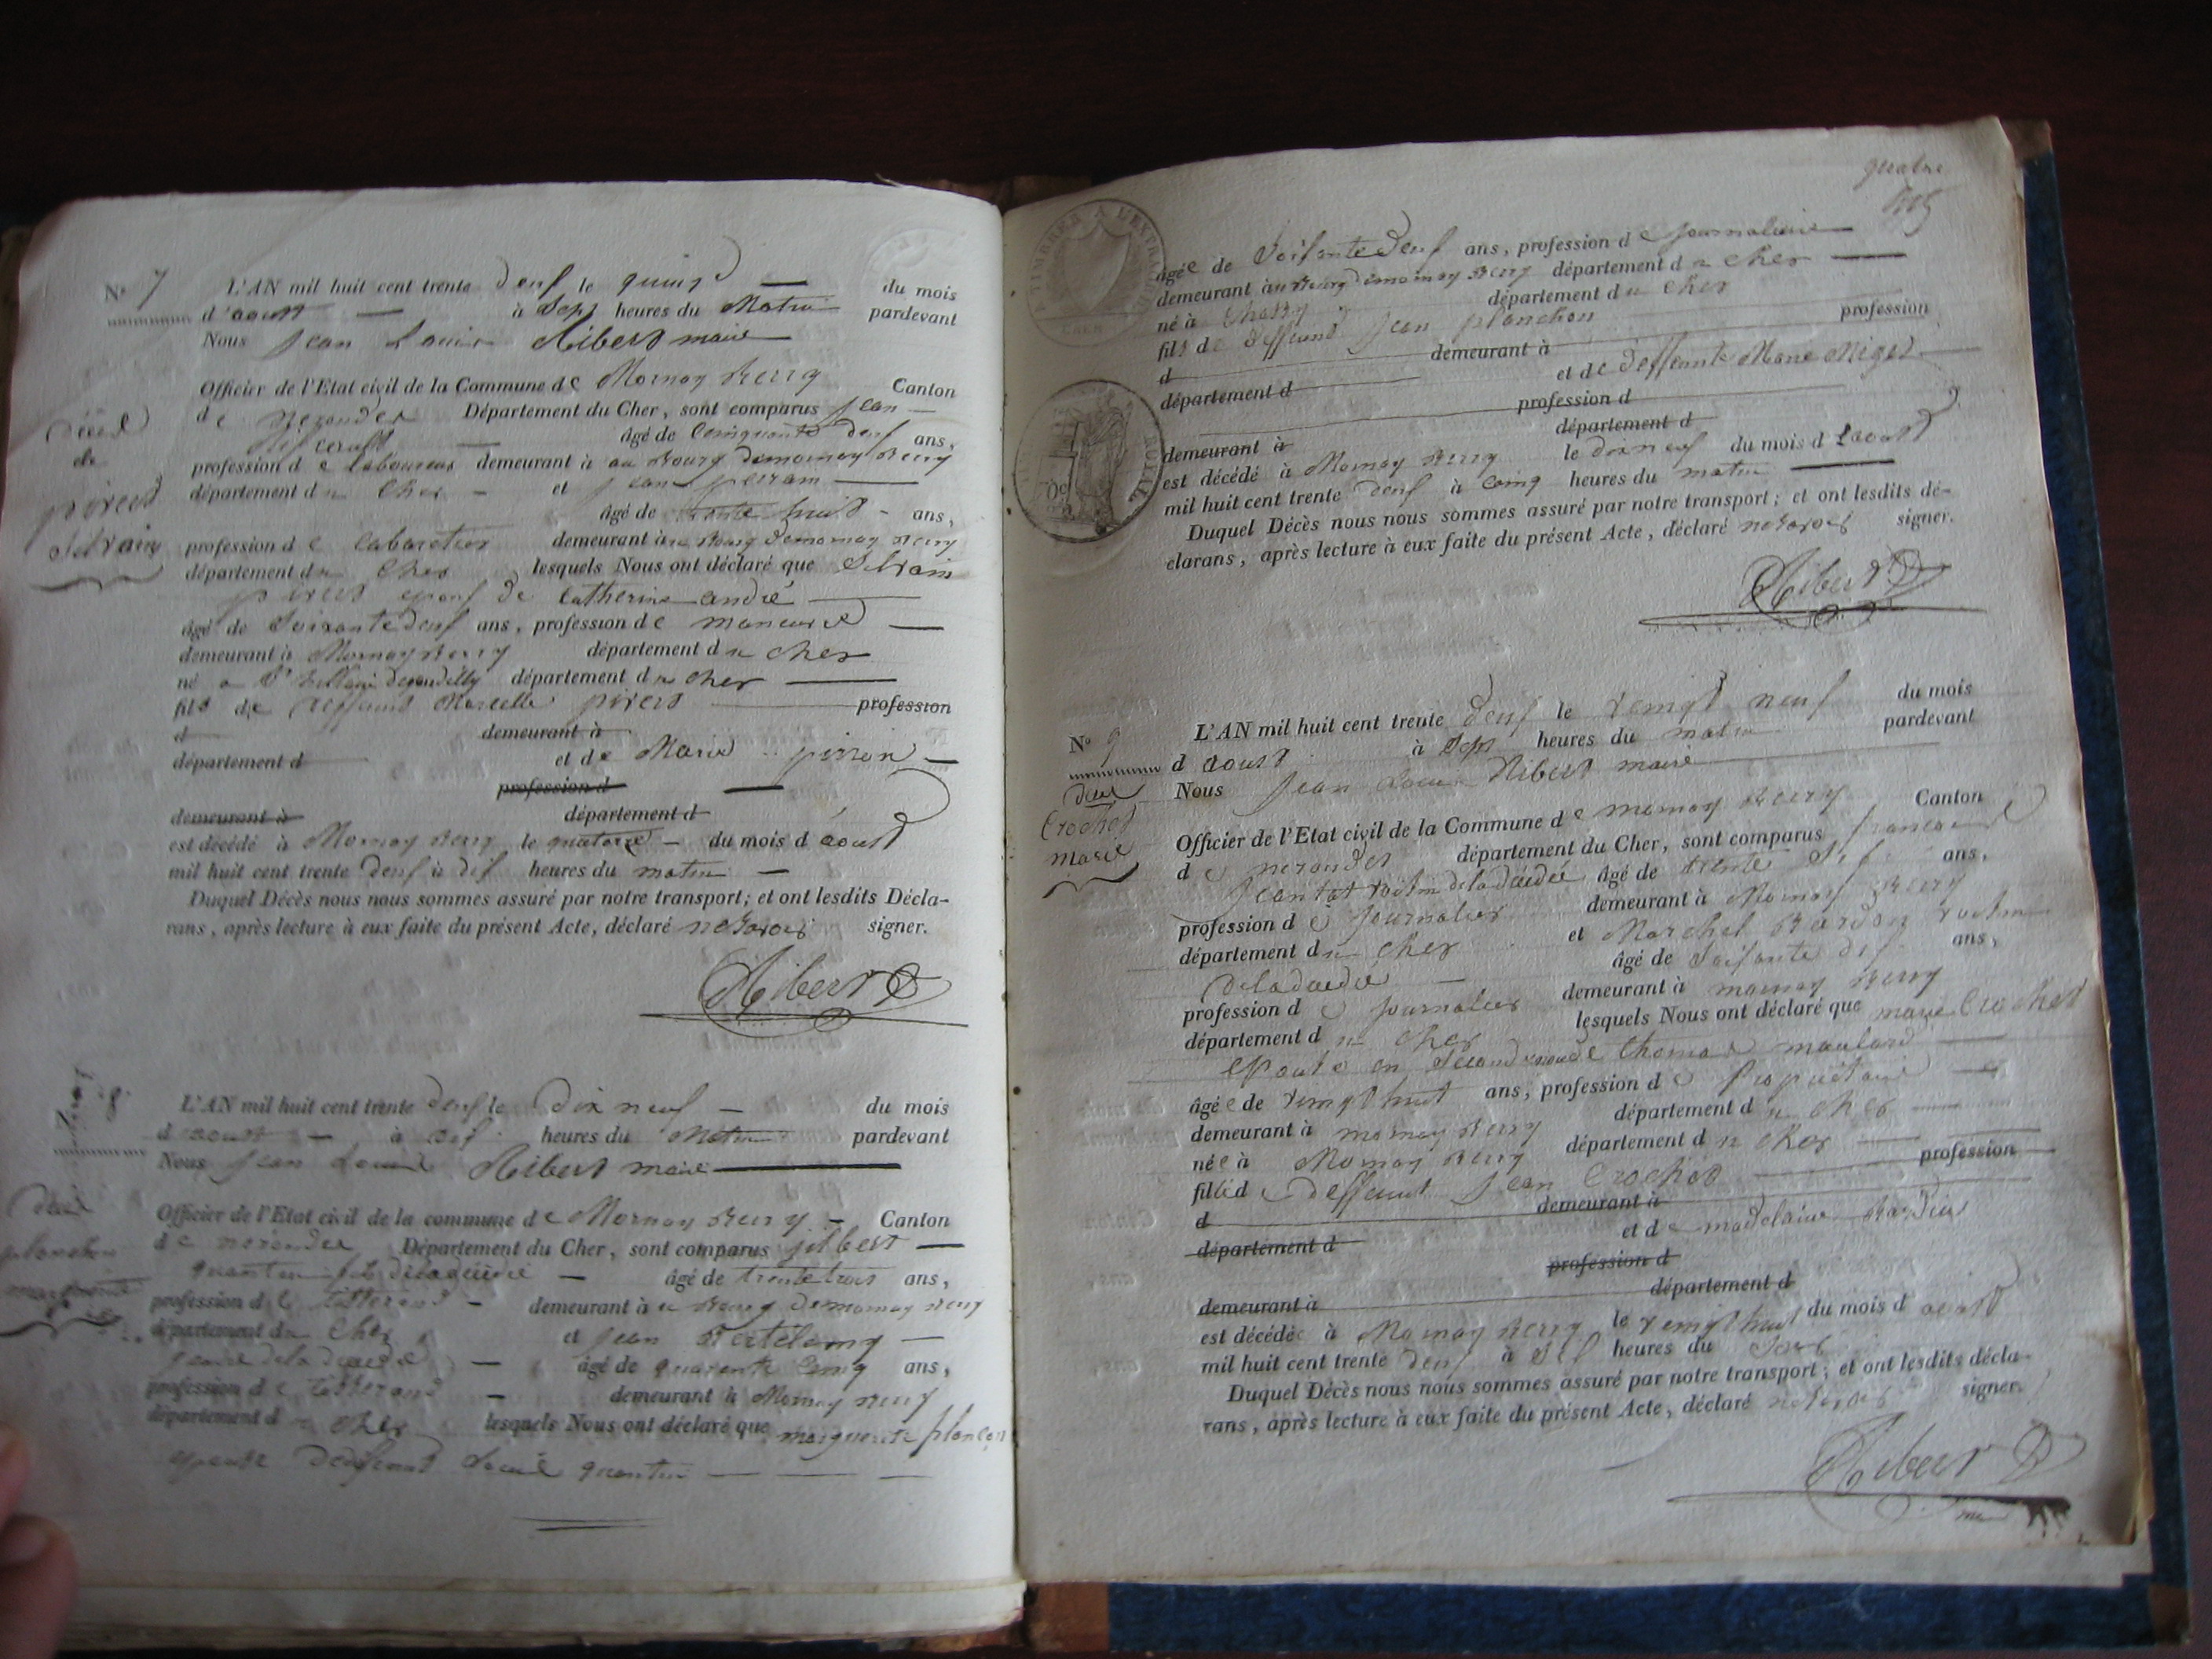 N° 7
L'AN mil huit cent trente deuf le quinse du mois
d'aoust à Sept heures du Matin pardevant
Nous Jean Louis Ribert maire
Officier de l'Etat civil de la Commune de Mornay Berry Canton
de nerondes Département du Cher, sont comparus Jean
âgé de Cinquante deuf ans,
profession de Laboureur demeurant à au Bourg demornay Berry
département du Cher et jean perram
âgé de trente huit ans,
profession de Cabaretier demeurant au Bourg demornay Berry
département du Cher lesquels Nous ont déclaré que Silvain
pivers epouf de Catherine andré
âgé de Soixante deuf ans, profession de maneuvre
demeurant à Mornay Berry département du Cher
né a St hillaire degondilly département du Cher
fils de deffunt Marcelle pivers profession
d demeurant à
département d et de Marie pirron
profession d
demeurant à département d
est décédé à Mornay Berry le quatorze du mois d'aoust
mil huit cent trente deuf à dif heures du matin
Duquel Décès nous nous sommes assuré par notre transport; et ont lesdits Décla-
rans, après lecture à eux faite du présent Acte, déclaré nesavoir signer.
Ribert
décéd
de
pivers
Silvain
8
L'AN mil huit cent trente deuf le Dix neuf du mois
d aoust à Sif heures du Matin pardevant
Nous Jean Louis Ribert maire
Officier de l'Etat civil de la commune de Mornay Berry Canton
de nerondes Département du Cher, sont comparus jilbert
quantin fils deladécédée âgé de trente trois ans,
profession de tisserand demeurant à u Bourg demornay Berry
département du Cher et jean Bertélemy
gendre deladécédé âgé de quarante Cinq ans,
profession de tisserand demeurant à Mornay Berry
département du Cher lesquels Nous ont déclaré que marguerite plançon
epouse dedeffunt Louis quantin
planchon
marguerite
quatre
âgée de Soifante Deuf ans, profession de journaliere
demeurant au Bourg demornay Berry département du Cher
né à Chassy département du Cher
fils de deffunt Jean planchon profession
d demeurant à
département d et de deffunte Marie Miger
profession d
demeurant à département d
est décédé à Mornay Berry le dixneuf du mois d Laoust
mil huit cent trente deuf à cinq heures du matin
Duquel Décès nous nous sommes assuré par notre transport; et ont lesdits dé-
clarans, après lecture à eux faite du présent Acte, déclaré nesavoir signer.
Ribert
TIMBRE A L'EXTRA
CHER
ROYAL
N° 9
L'AN mil huit cent trente deuf le vingt neuf du mois
d aoust à Sept heures du matin pardevant
Nous Jean Louis Ribert maire
Officier de l'Etat civil de la Commune de mornay Berry Canton
de nerondes département du Cher, sont comparus francois
jeantot voisin deladécédée âgé de trente Sif ans,
profession de journalier demeurant à Mornay Berry
département du Cher et Marchel Bardon voisin
deladécédée âgé de Soifante dif ans,
profession de journalier demeurant à mornay Berry
département du Cher lesquels Nous ont déclaré que marie Crochet
Epouse en Second noce de thomas maulard
âgée de vingt huit ans, profession de propriétaire
demeurant à mornay Berry département du Cher
née à Mornay Berry département du Cher
fille de deffunt jean Crochet profession
d demeurant à
département d et de madelaine Bardin
profession d
demeurant à département d
est décédée à Mornay Berry le vingt huit du mois d aoust
mil huit cent trente deuf à Sif heures du Soir
Duquel Décès nous nous sommes assuré par notre transport; et ont lesdits décla-
rans, après lecture à eux faite du présent Acte, déclaré nesavoir signer.
Ribert
Crochet
Marie